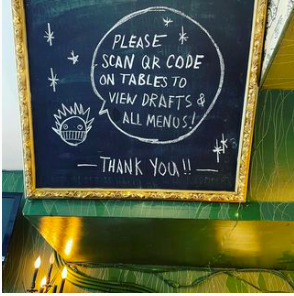 PLEASE
SCAN QR CODE
ON TABLES TO
VIEW DRAFTS &
ALL MENUS!
— THANK YOU!! —